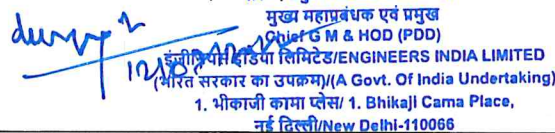 मुख्य महाप्रबंधक एवं प्रमुख
Chief G M & HOD (PDD)
इंजीनियर्स इंडिया लिमिटेड/ENGINEERS INDIA LIMITED
(भारत सरकार का उपक्रम)/(A Govt. Of India Undertaking)
1. भीकाजी कामा प्लेस/ 1. Bhikaji Cama Place,
नई दिल्ली/New Delhi-110066